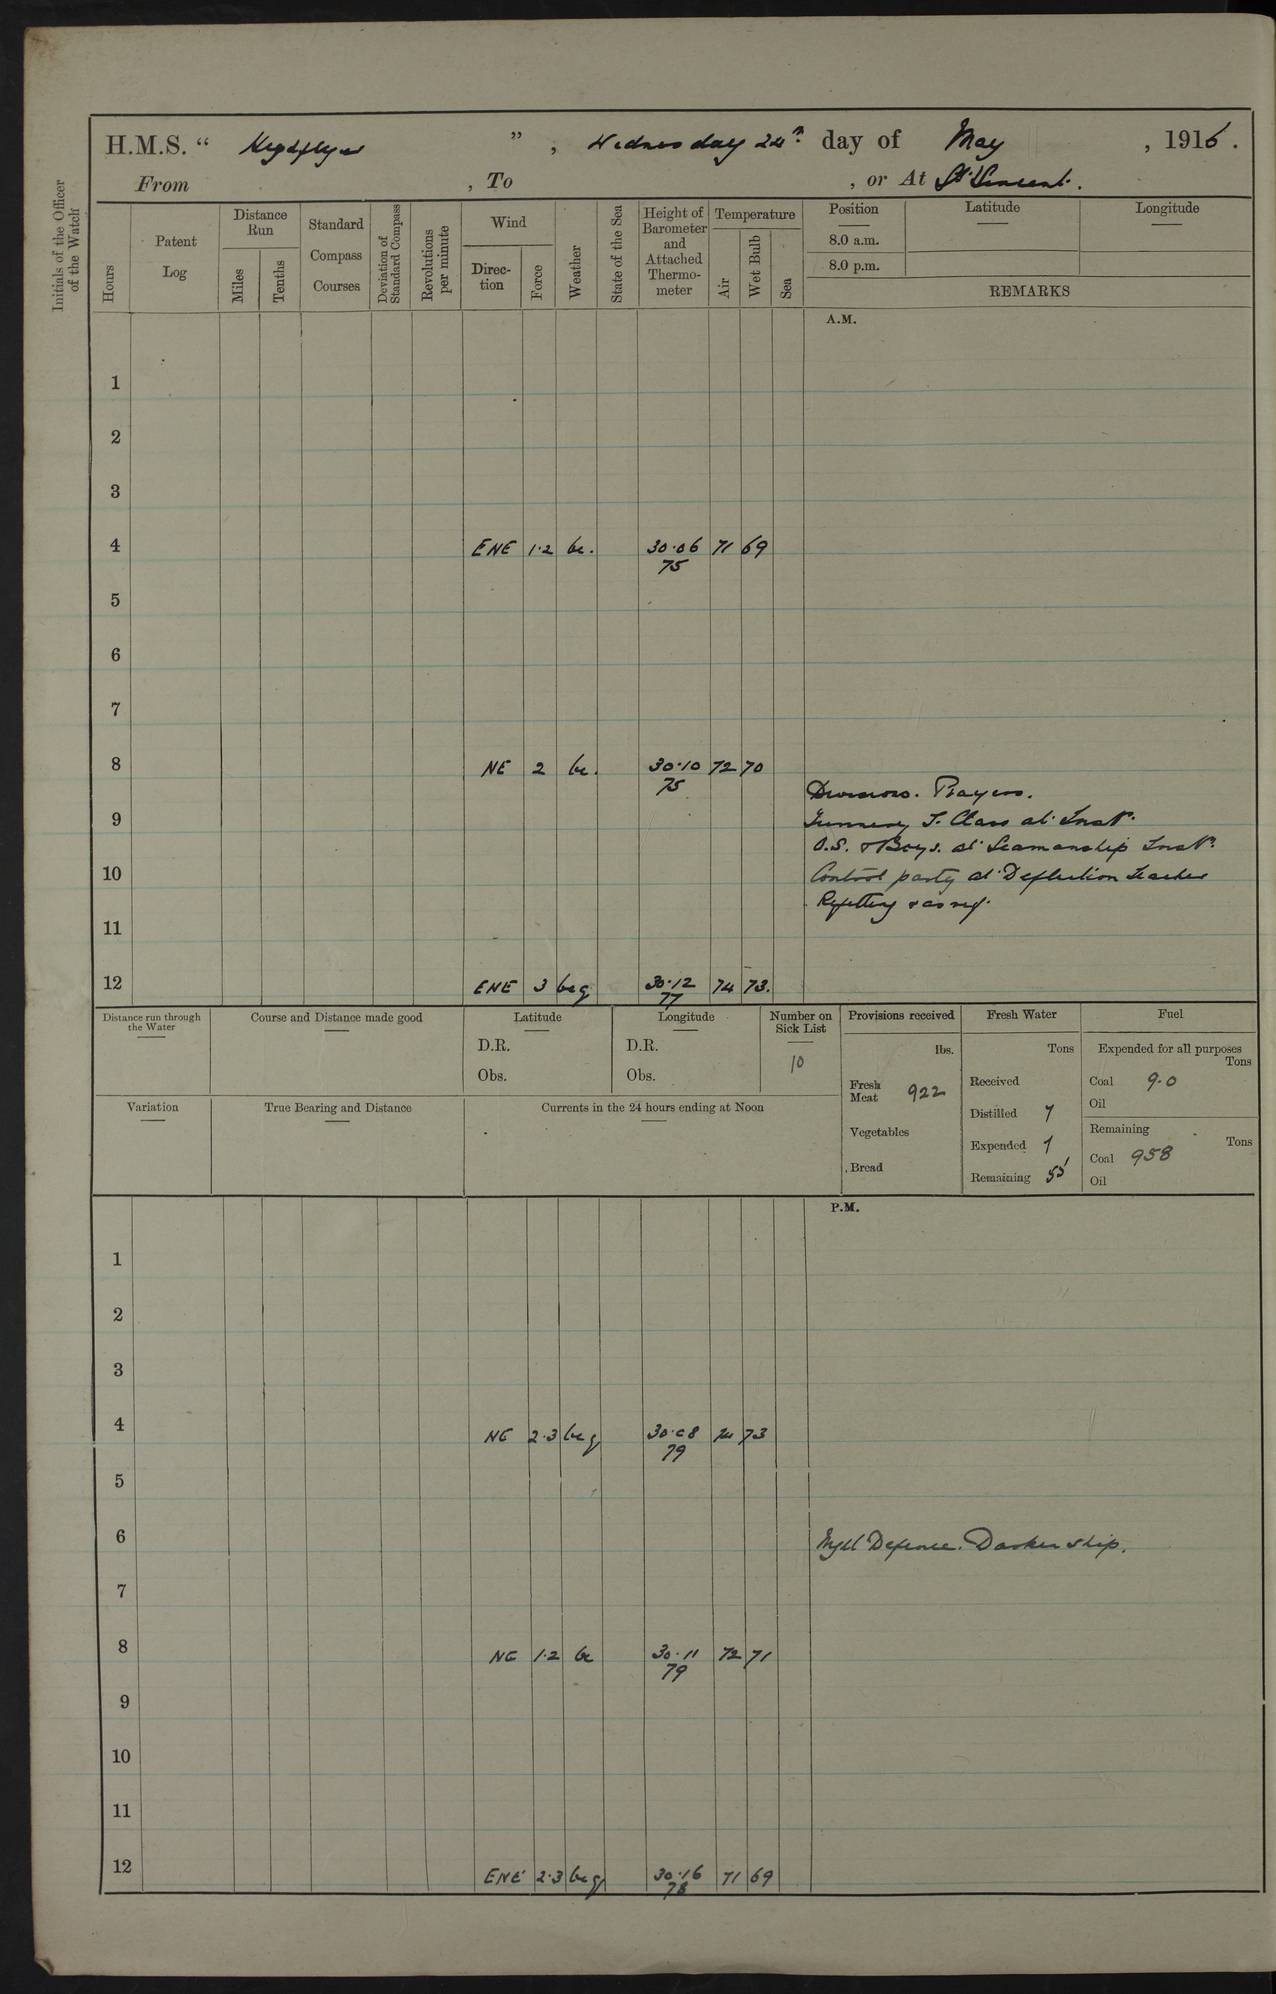 H.M.S. “ Highflyer ” , Wednesday 24th day of May , 1916 .
From , To , or At St Vincent.
Initials of the Officer of the Watch
Hours
Patent Log
Distance Run
Miles
Tenths
Standard Compass Courses
Deviation of Standard Compass
Revolutions per minute
Wind
Direction
Force
Weather
State of the Sea
Height of Barometer and Attached Thermometer
Temperature
Air
Wet Bulb
Sea
Position
8.0 a.m.
8.0 p.m.
Latitude
Longitude
REMARKS
A.M.
1
2
3
4 ENE 1·2 bc. 30·06 71 69
75
5
6
7
8 NE 2 bc. 30·10 72 70
75
Divisions. Prayers.
9 Gunnery T. Class at Instn.
O.S. & Boys. at Seamanship Instn.
10 Control party at Deflection teacher
Refitting & as req.
11
12 ENE 3 bcq 30·12 74 73.
77
Distance run through the Water
Course and Distance made good
Latitude
D.R.
Obs.
Longitude
D.R.
Obs.
Number on Sick List
10
Provisions received
lbs.
Fresh Meat 922
Vegetables
Bread
Fresh Water
Tons
Received
Distilled 7
Expended 7
Remaining 55
Fuel
Expended for all purposes
Tons
Coal 9·0
Oil
Remaining
Tons
Coal 958
Oil
Variation
True Bearing and Distance
Currents in the 24 hours ending at Noon
P.M.
1
2
3
4 NE 2·3 bcq 30·08 74 73
79
5
6 Night Defence. Darken ship.
7
8 NE 1·2 bc 30·11 72 71
79
9
10
11
12 ENE 2·3 bcq 30·16 71 69
78